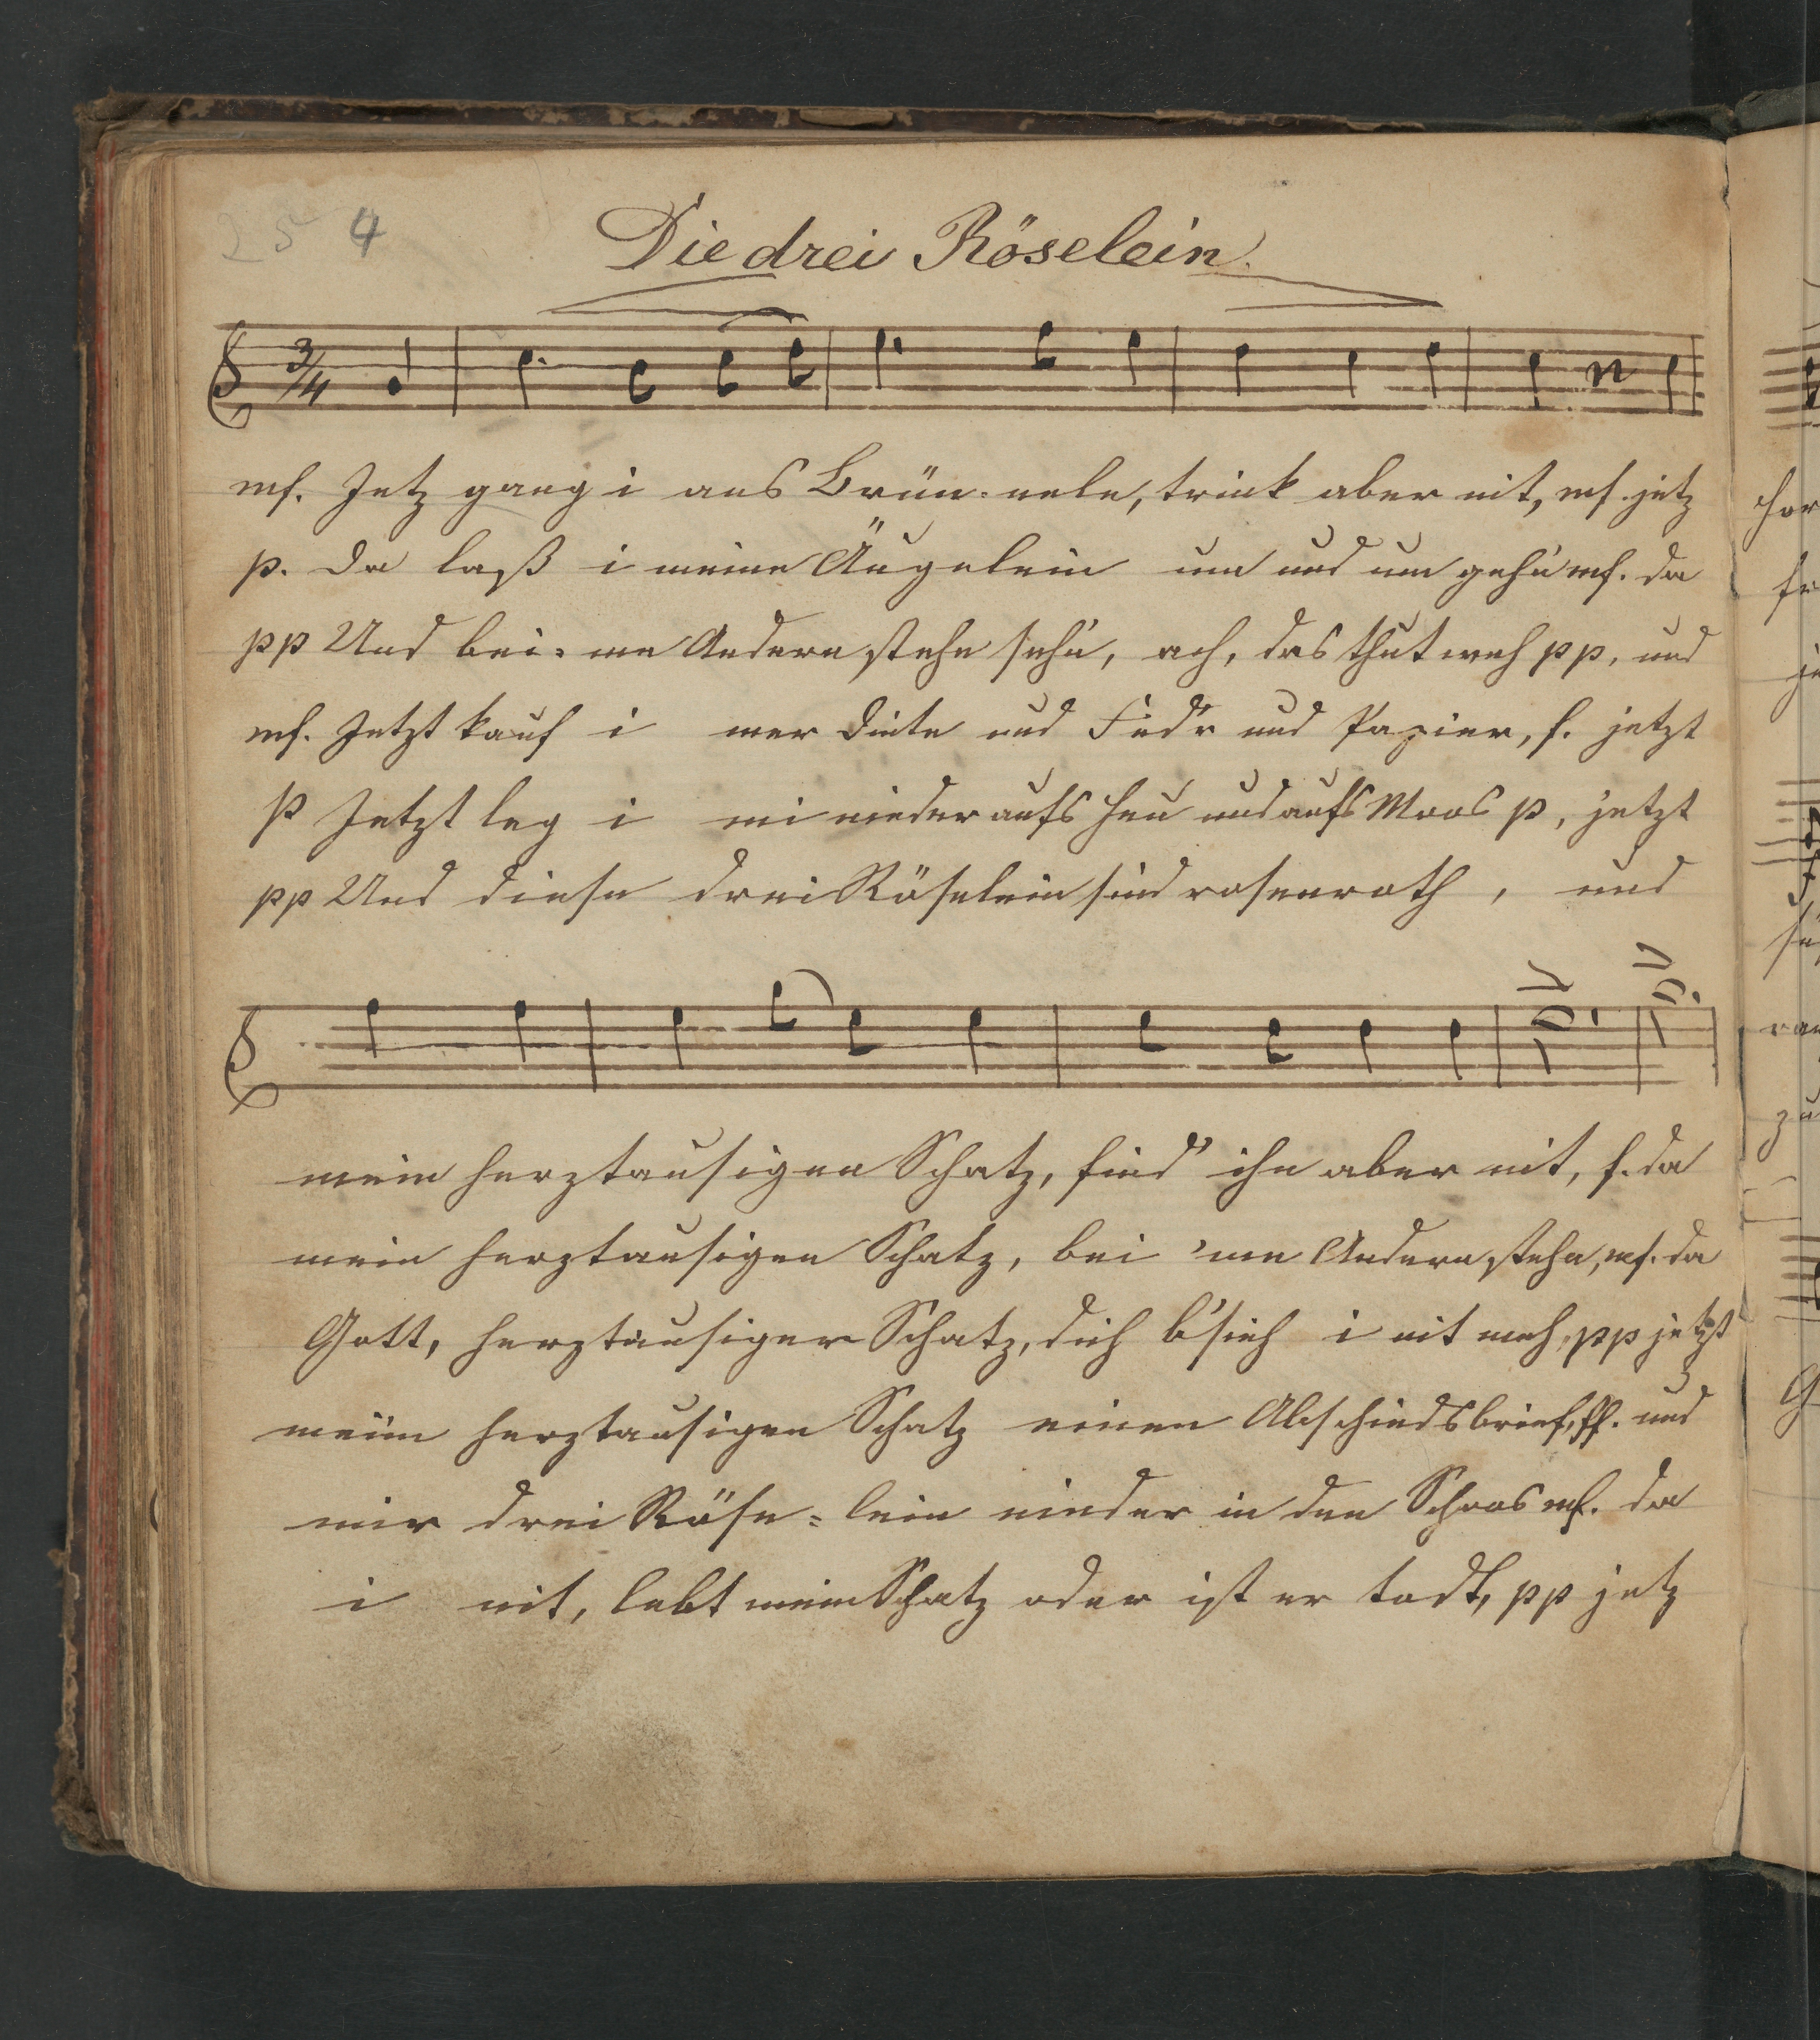 254
Die drei Röselein.
3/4
mf. Jetz gang i ans Brün=nele, trink aber nit, mf. jetz
p. Da laß i meine Äugelein um und um gehn mf. da
pp Und bei=me Andern stehn sehn, ach, das thut weh pp, und
mf. Jetzt kauf i mer Dinte und Fed'r und Papier, f. jetzt
p Jetzt leg i mi nieder aufs Heu und aufs Moos p, jetzt
pp Und diese drei Röselein sind rosenroth, und
mein herztausigen Schatz, find' ihn aber nit, f. da
mein herztausigen Schatz, bei 'me Andern stehn, mf. da
Gott, herztausiger Schatz, dich b'sieh i nit meh, pp jetzt
meim herztausigen Schatz einen Abschiedsbrief, ff. und
mir drei Röse=lein nieder in den Schoos mf. da
i nit, lebt mein Schatz oder ist er todt, pp jetz